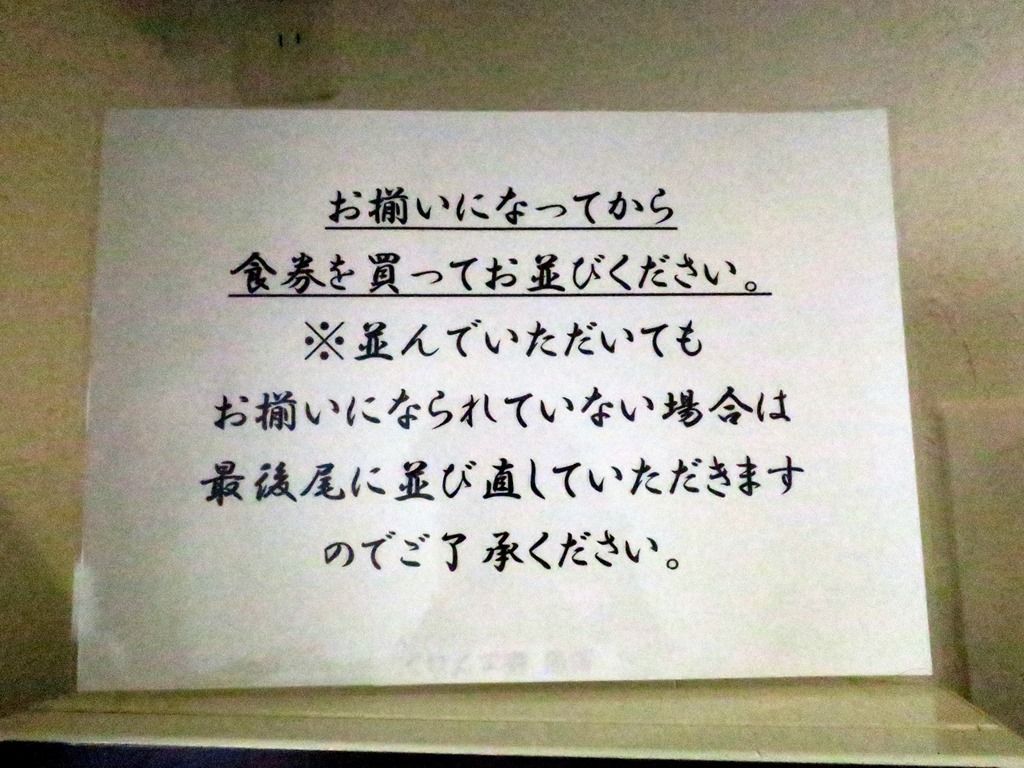 お揃いになってから
食券を買ってお並びください。
※並んでいただいても
お揃いになられていない場合は
最後尾に並び直していただきます
のでご了承ください。